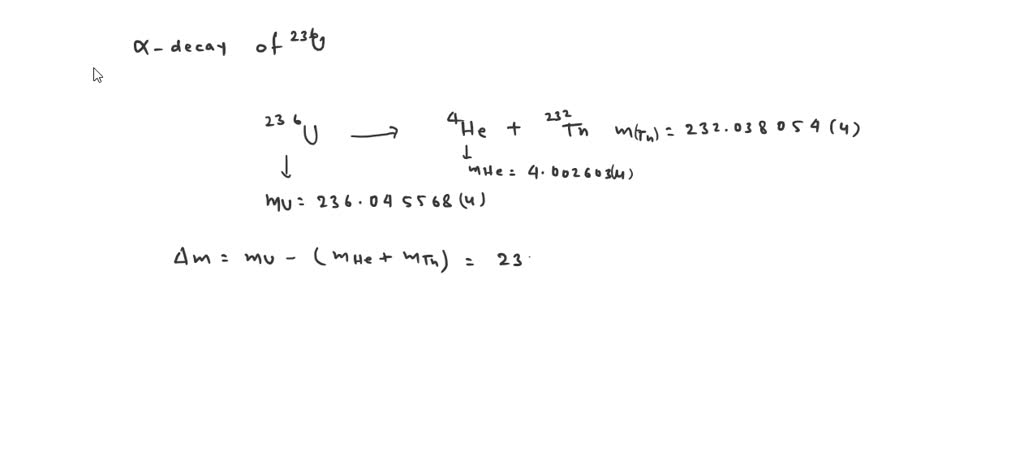 α-decay of ²³⁶U
²³⁶U → ⁴He + ²³²Th m(Th) = 232.038054(u)
↓ ↓ mHe = 4.002603(u)
mU = 236.045568(u)
Δm = mU - (mHe + mTh) = 23.